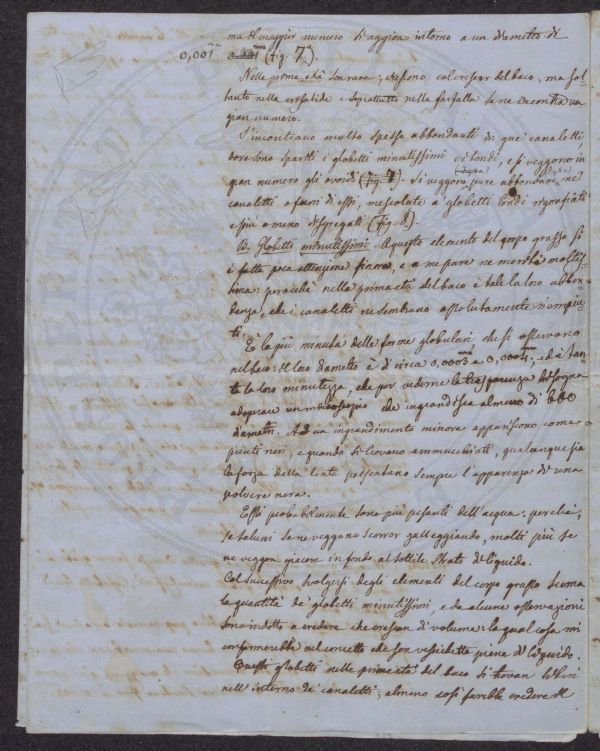 ma il maggior numero s'aggira intorno a un diametro di
0,001mm (fig. 7.).
Nelle prime età son rare; crescono col crescer del baco, ma sol-
tanto nella crisalide e soprattutto nella farfalla se ne incontra un
gran numero.
S'incontrano molto spesso abbondanti in que' canaletti,
dove sono spariti i globetti minutissimi rotondi, e si veggono in
gran numero gli ovoidi (fig. 7). Si veggon pure abbondare ne'
canaletti o fuori di essi, mescolate a globetti tondi rigonfiati
e più o meno disgregati (fig. 8.).
B. Globetti minutissimi. A questo elemento del corpo grasso si
è fatta poca attenzione finora, e a me pare ne meriti moltis-
sima: perocchè nella prima età del baco è tale la loro abbon-
danza, che i canaletti ne sembrano assolutamente riempiu-
ti.
È la più minuta delle forme globulari che si osservano
nel baco: il loro diametro è di circa 0,0003 a 0,0004mm: ed è tan-
ta la loro minutezza, che per vederne la trasparenza, bisogna
adoprare un microscopio che ingrandisca almeno di 600
diametri. Ad un ingrandimento minore appariscono come
punti neri; e quando si trovano ammucchiati, qualunque sia
la forza della lente presentano sempre l'apparenza di una
polvere nera.
Essi probabilmente sono più pesanti dell'acqua: perchè,
se taluni se ne veggono scorrer galleggiando, molti più se
ne veggon giacere in fondo al sottile strato di liquido.
Col successivo svolgersi degli elementi del corpo grasso scema
la quantità de' globetti minutissimi, e da alcune osservazioni
sono indotto a credere che crescan di volume: la qual cosa mi
confermerebbe nel concetto che son vescichette piene di liquido.
Questi globetti nelle prime età del baco si trovan
nell'interno de' canaletti; almeno così farebbe credere il